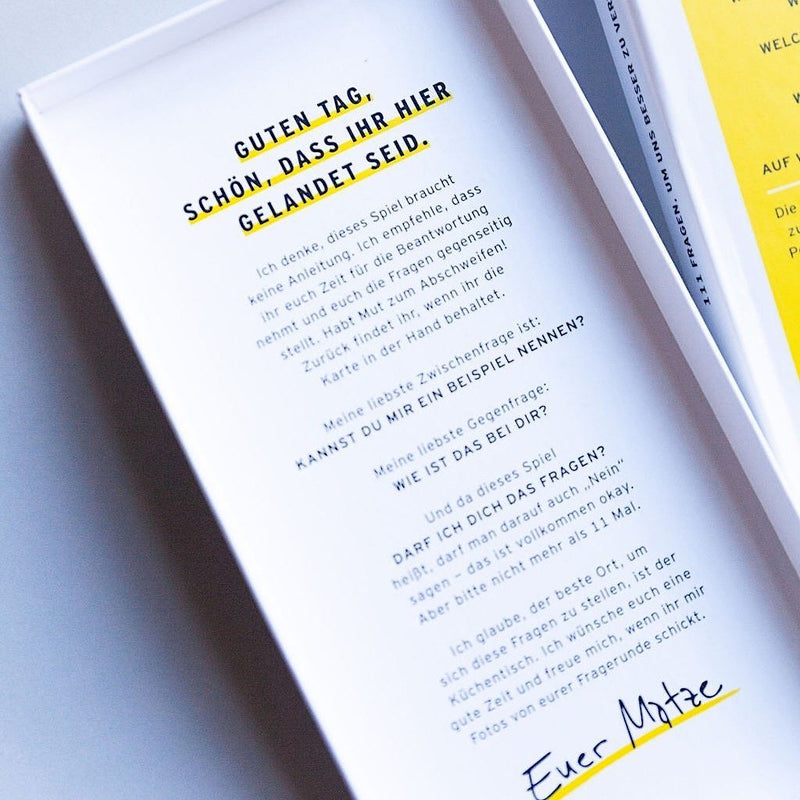 GUTEN TAG,
SCHÖN, DASS IHR HIER
GELANDET SEID.
Ich denke, dieses Spiel braucht
keine Anleitung. Ich empfehle, dass
ihr euch Zeit für die Beantwortung
nehmt und euch die Fragen gegenseitig
stellt. Habt Mut zum Abschweifen!
Zurück findet ihr, wenn ihr die
Karte in der Hand behaltet.
Meine liebste Zwischenfrage ist:
KANNST DU MIR EIN BEISPIEL NENNEN?
Meine liebste Gegenfrage:
WIE IST DAS BEI DIR?
Und da dieses Spiel
DARF ICH DICH DAS FRAGEN?
heißt, darf man darauf auch „Nein“
sagen – das ist vollkommen okay.
Aber bitte nicht mehr als 11 Mal.
Ich glaube, der beste Ort, um
sich diese Fragen zu stellen, ist der
Küchentisch. Ich wünsche euch eine
gute Zeit und freue mich, wenn ihr mir
Fotos von eurer Fragerunde schickt.
Euer Matze
111 FRAGEN, UM UNS BESSER ZU VER
WELC
W
AUF
Die
zu